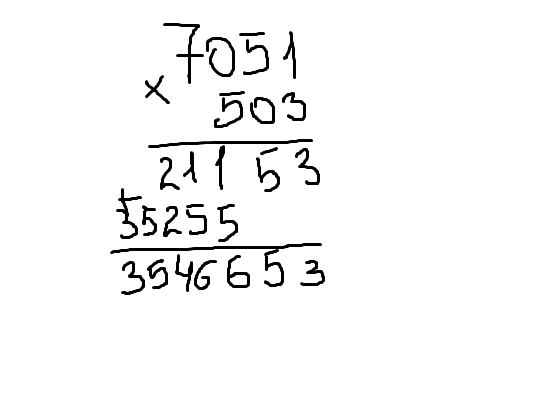 7051
×
503
21153
+
35255
3546653